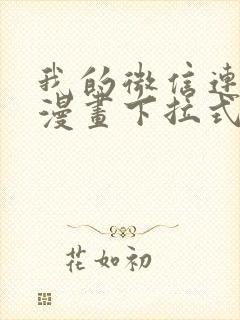 我的微信連
漫畫下拉式
花如初